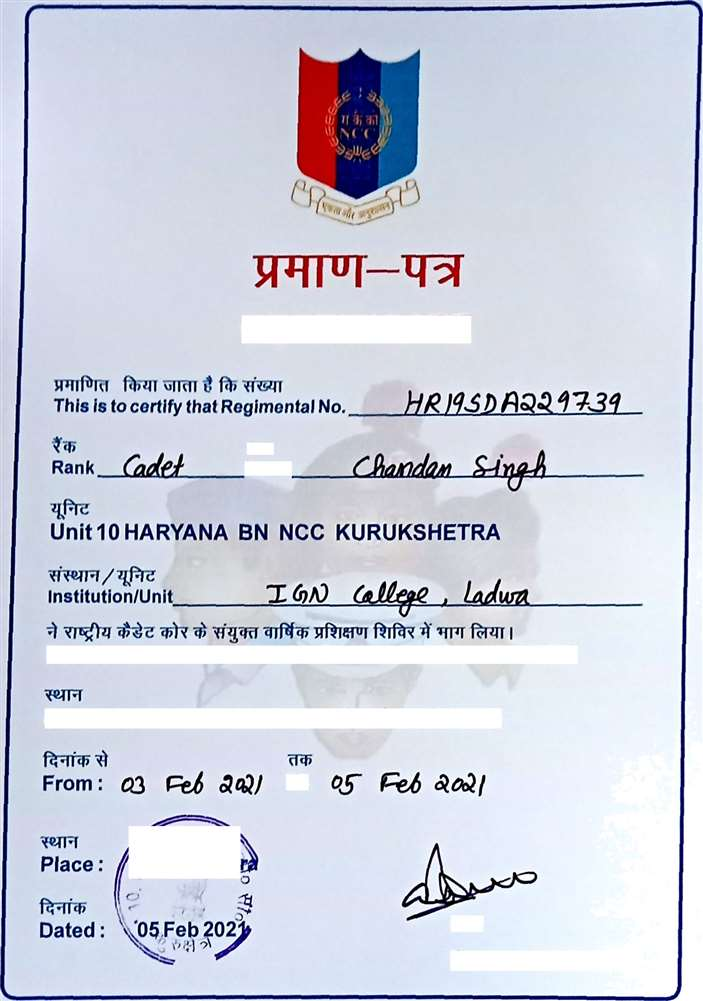 रा कै को
NCC
एकता और अनुशासन
प्रमाण–पत्र
प्रमाणित किया जाता है कि संख्या
This is to certify that Regimental No. HR19SDA229739
रैंक
Rank Cadet Chandan Singh
यूनिट
Unit 10 HARYANA BN NCC KURUKSHETRA
संस्थान / यूनिट
Institution/Unit IGN College, Ladwa
ने राष्ट्रीय कैडेट कोर के संयुक्त वार्षिक प्रशिक्षण शिविर में भाग लिया।
स्थान
दिनांक से तक
From : 03 Feb 2021 05 Feb 2021
स्थान
Place :
दिनांक
Dated : 05 Feb 2021